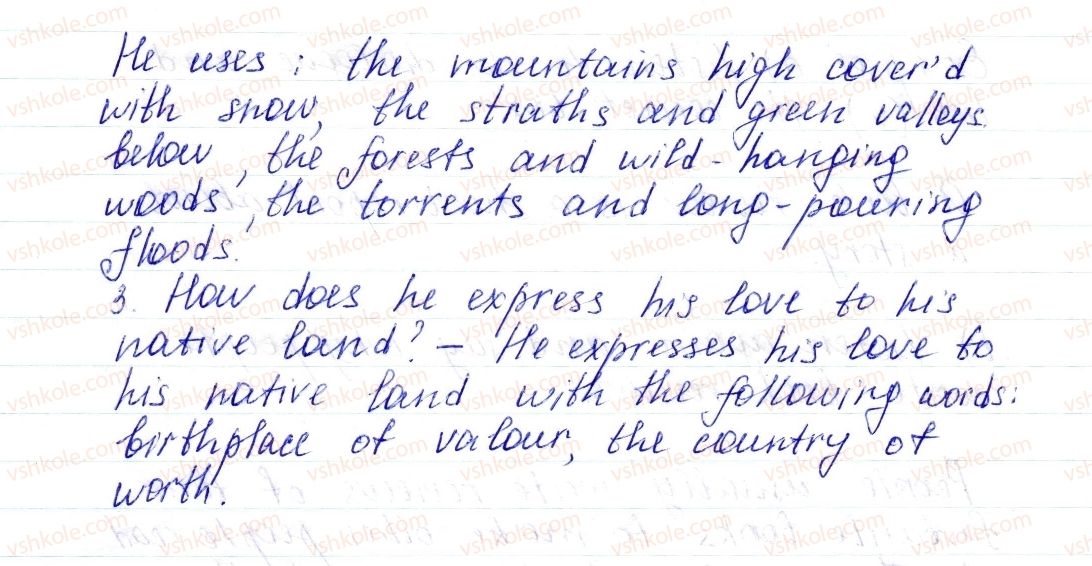 He uses: the mountains high cover'd
with snow, the straths and green valleys
below, the forests and wild-hanging
woods, the torrents and long-pouring
floods.
3. How does he express his love to his
native land? – He expresses his love to
his native land with the following words:
birthplace of valour, the country of
worth.